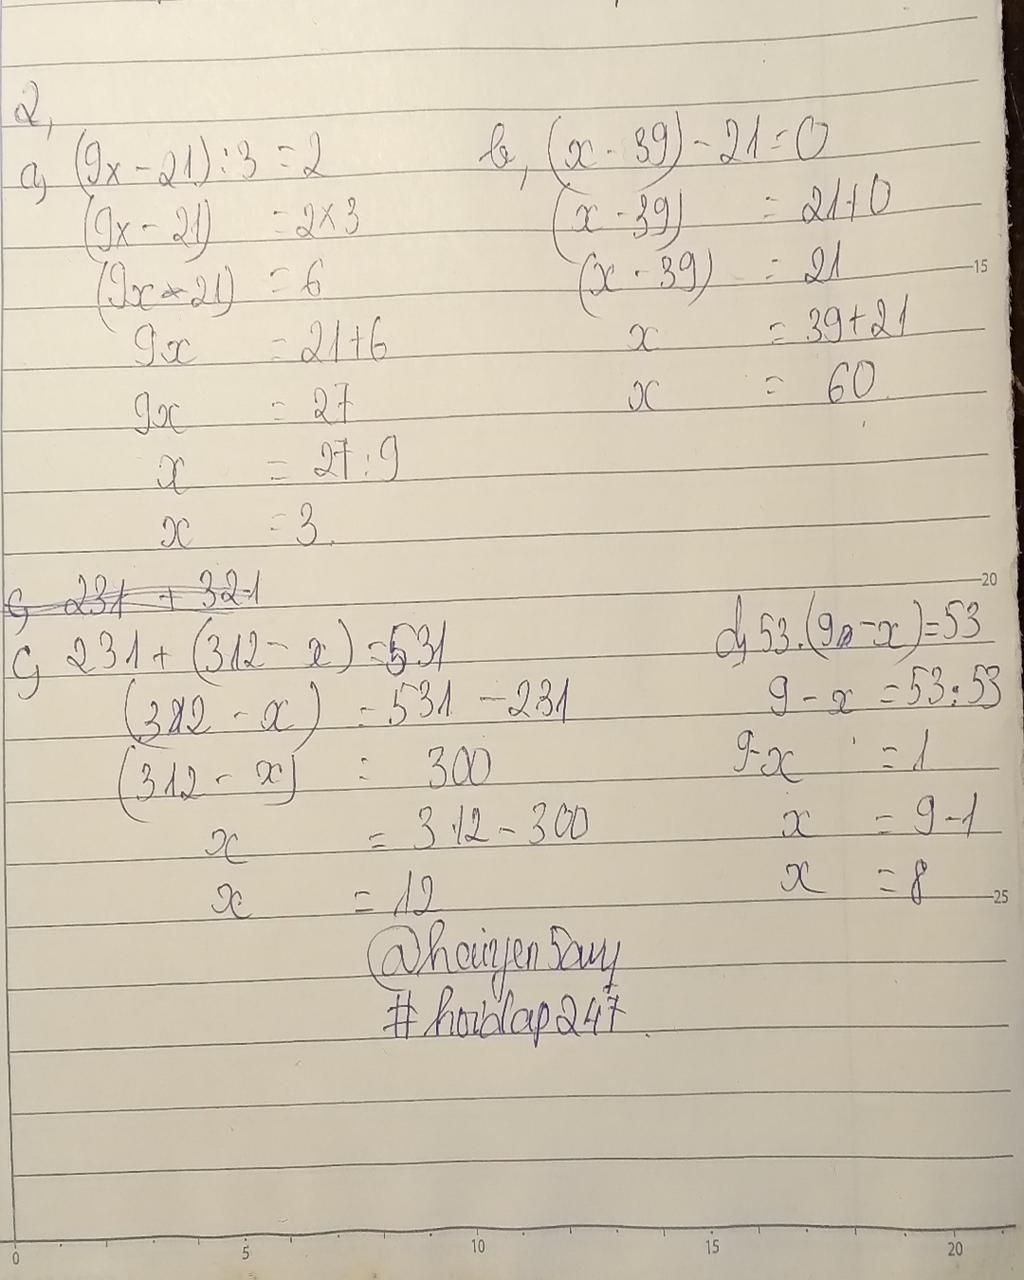 2,
a, (9x - 21) : 3 = 2
(9x - 21) = 2 x 3
(9x - 21) = 6
9x = 21 + 6
9x = 27
x = 27 : 9
x = 3.
b, (x - 39) - 21 = 0
(x - 39) = 21 + 0
(x - 39) = 21
x = 39 + 21
x = 60
c, 231 + 321
c, 231 + (312 - x) = 531
(312 - x) = 531 - 231
(312 - x) = 300
x = 312 - 300
x = 12
d, 53 . (9 - x) = 53
9 - x = 53 : 53
9 - x = 1
x = 9 - 1
x = 8
@haiyen5auy
#hoidap247.
15
20
25
0 5 10 15 20